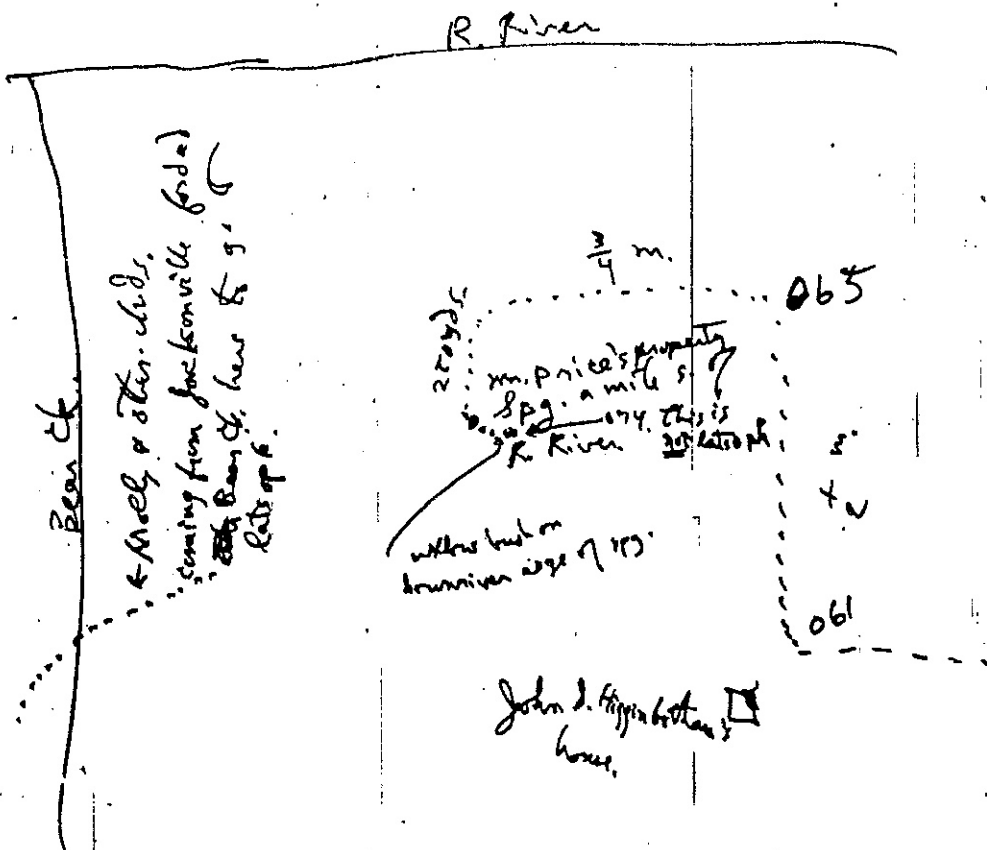 R. River
Bear Ck
& other
coming from Jacksonville forded
Bear Ck. here to
latsopk.
m.
250 yds.
065
Mr. Price's property
Spg. a mile s. of
074. This is
R. River not latsopk
willow bush on
downriver edge of spg.
061
John D. Higginbotham's
house.